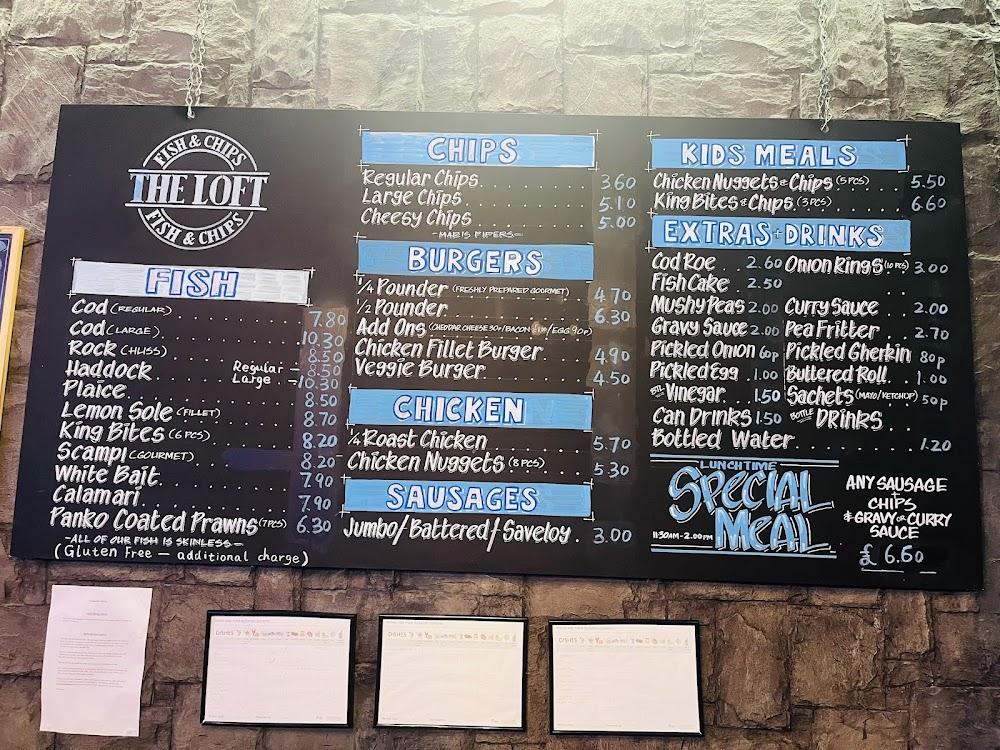 FISH & CHIPS
THE LOFT
FISH & CHIPS
FISH
Cod (REGULAR) 7.80
Cod (LARGE) 10.30
Rock (HUSS) 8.50
Haddock Regular - 8.50
Large - 10.30
Plaice 8.50
Lemon Sole (FILLET) 8.70
King Bites (6 PCS) 8.20
Scampi (GOURMET) 8.20
White Bait 7.90
Calamari 7.90
Panko Coated Prawns (7 PCS) 6.30
- ALL OF OUR FISH IS SKINLESS -
(Gluten Free - additional charge)
CHIPS
Regular Chips 3.60
Large Chips 5.10
Cheesy Chips 5.00
- MARIS PIPERS -
BURGERS
1/4 Pounder (FRESHLY PREPARED GOURMET) 4.70
1/2 Pounder 6.30
Add Ons (CHEDDAR CHEESE 30p/BACON /EGG 90p)
Chicken Fillet Burger 4.90
Veggie Burger 4.50
CHICKEN
1/4 Roast Chicken 5.70
Chicken Nuggets (8 PCS) 5.30
SAUSAGES
Jumbo/Battered/Saveloy 3.00
KIDS MEALS
Chicken Nuggets & Chips (5 PCS) 5.50
King Bites & Chips (3 PCS) 6.60
EXTRAS + DRINKS
Cod Roe 2.60 Onion Rings (10 PCS) 3.00
Fish Cake 2.50
Mushy Peas 2.00 Curry Sauce 2.00
Gravy Sauce 2.00 Pea Fritter 2.70
Pickled Onion 60p Pickled Gherkin 80p
Pickled Egg 1.00 Buttered Roll 1.00
BTL Vinegar 1.50 Sachets (MAYO/KETCHUP) 50p
Can Drinks 1.50 BOTTLE DRINKS
Bottled Water 1.20
LUNCHTIME
SPECIAL
MEAL
11:30AM - 2.00PM
ANY SAUSAGE
+
CHIPS
& GRAVY or CURRY
SAUCE
£ 6.60
DISHES
DISHES
DISHES